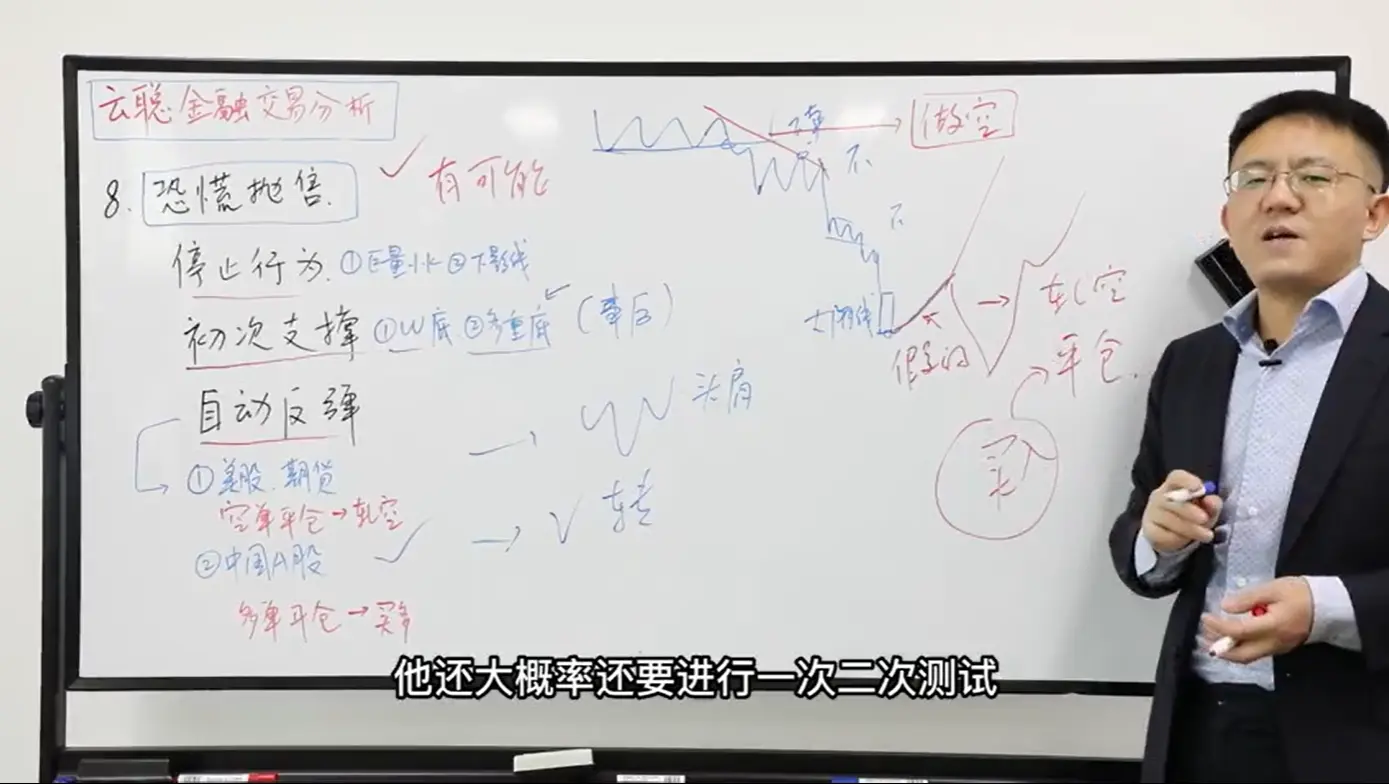 云聪金融交易分析
8. 恐慌抛售. ✓ 有可能
停止行为. ①巨量小K ②下影线
初次支撑 ①W底 ②多重底
自动反弹
①美股.期货
空单平仓→轧空
②中国A股
多单平仓→买多
头肩
V 转
做空
不
不
大阴线
假的
轧空
平仓.
买入
他还大概率还要进行一次二次测试